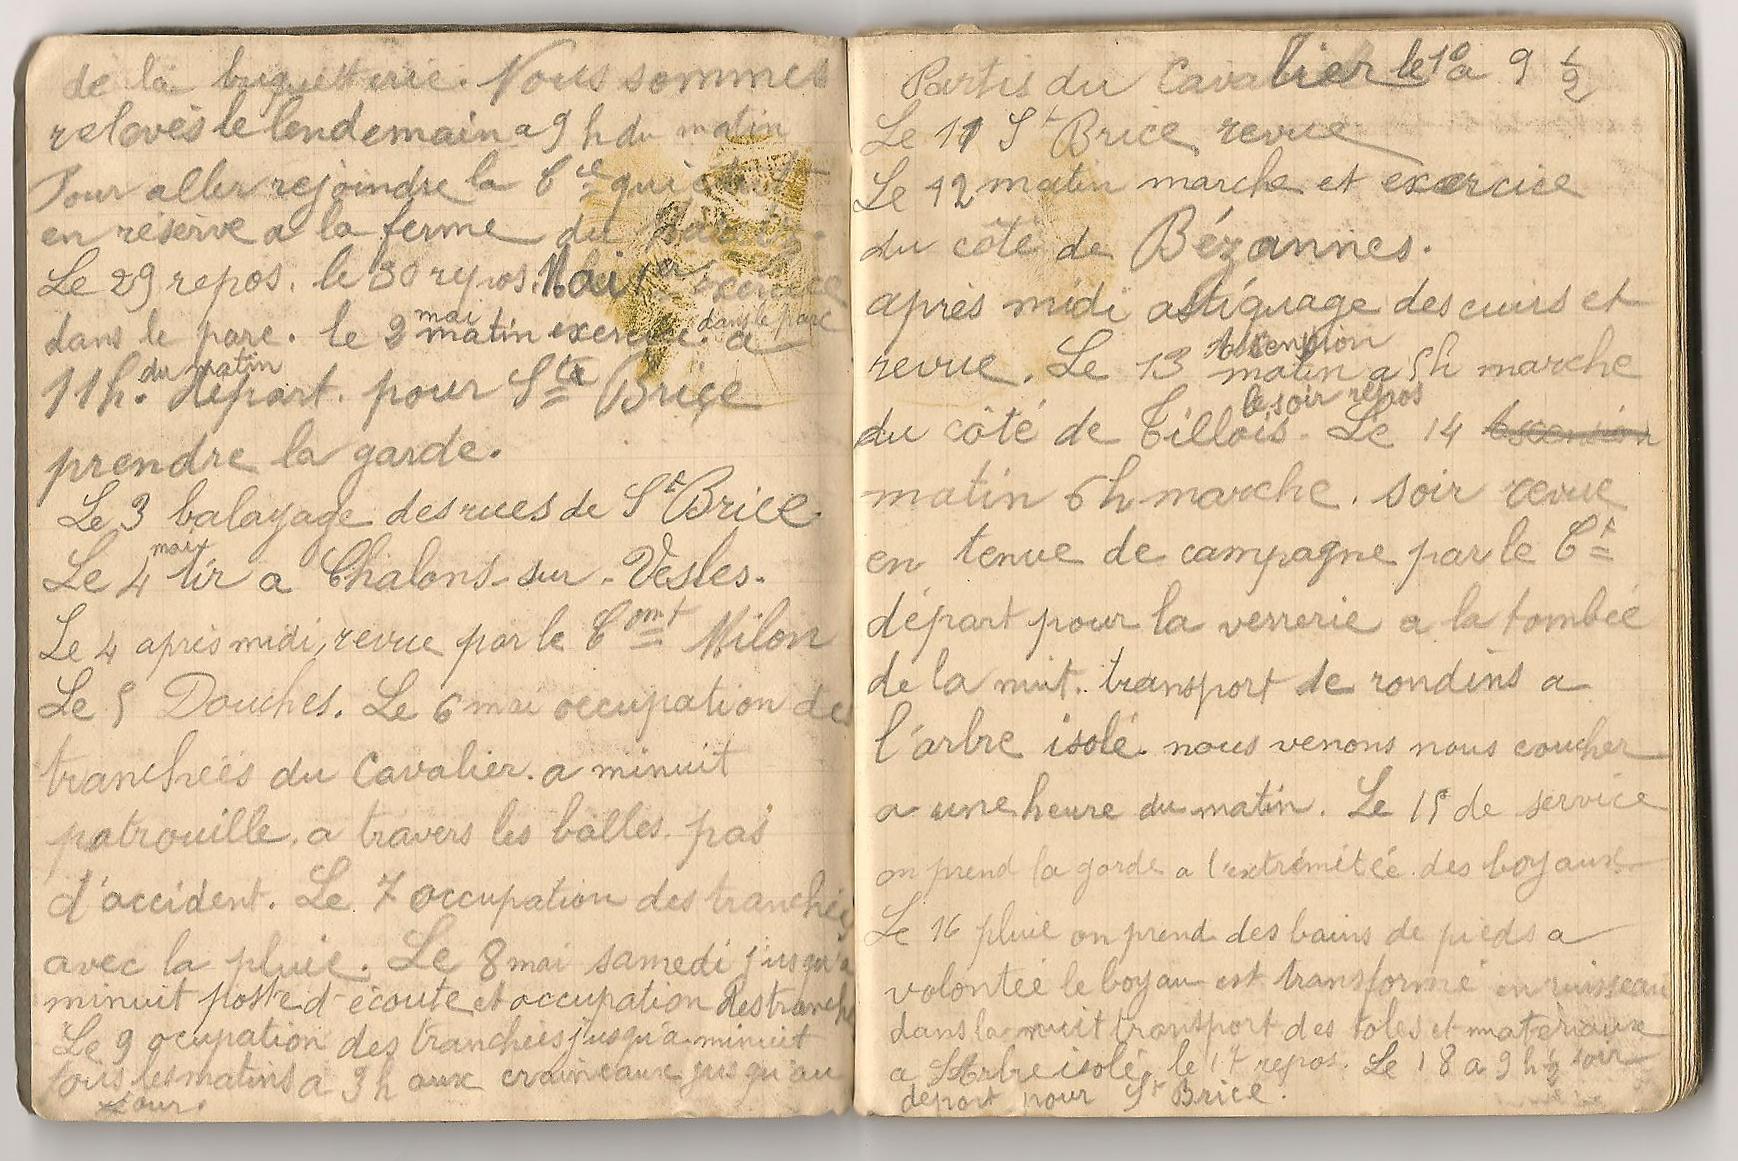 de la briquetterie. Nous sommes
relevés le lendemain a 9 h du matin
Pour aller rejoindre la Cie qui était
en réserve a la ferme du
Le 29 repos. le 30 repos. Mai 1er exercice
dans le parc. le 2 mai matin exercice dans le parc a
11h. du matin départ. pour Ste Brice
prendre la garde.
Le 3 balayage des rues de St Brice.
Le 4 matin tir a Chalons-sur-Vesles.
Le 4 après midi, revue par le Comt Milon
Le 5 Douches. Le 6 mai occupation des
tranchées du Cavalier. a minuit
patrouille. a travers les balles. pas
d'accident. Le 7 occupation des tranchées
avec la pluie. Le 8 mai samedi jusqu'a
minuit poste d'écoute et occupation des tranch
Le 9 ocupation des tranchées jusqu'a minuit
tous les matins a 3h aux craineaux jusqu'au
jour.
Partis du Cavalier le 10 a 9 1/2
Le 11 St Brice revue
Le 12 matin marche et exercice
du côté de Bézannes.
après midi astiquage des cuirs et
revue. Le 13 Ascention matin a 5h marche
du côté de Tillois. le soir repos Le 14 Ascension
matin 6h marche. soir revue
en tenue de campagne par le Ct
départ pour la verrerie a la tombée
de la nuit. transport de rondins a
l'arbre isolé. nous venons nous coucher
a une heure du matin. Le 15 de service
on prend la garde a l'extrémitée des boyaux
Le 16 pluie on prend des bains de pieds a
volontée le boyau est transformé en ruisseau
dans la nuit transport des toles et materiaux
a l'Arbre isolé. le 17 repos. Le 18 a 9 h 1/2 soir
départ pour St Brice.